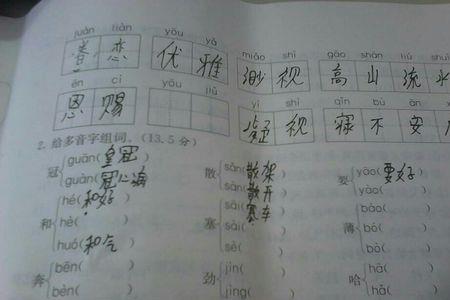 juàn liàn yōu yǎ miǎo shì gāo shān liú shuǐ
眷 恋 优 雅 渺 视 高 山 流 水
ēn cì yōu jiǔ yí shì qǐn bù ān
恩 赐 疑 视 寝 不 安
2. 给多音字组词。(13.5 分)
冠 guān(皇冠) 散 sǎn(散架) 要 yào(要好)
guàn(冠心病) sàn(散开) yāo(
和 hé(和好) 塞 sài(塞车) 薄 báo(
hè( ) sāi( ) bó(
huó(和气) sè( ) bò(
奔 bēn( ) 劲 jìn( ) 哈 hā(
bèn( ) jìng( ) hǎ(